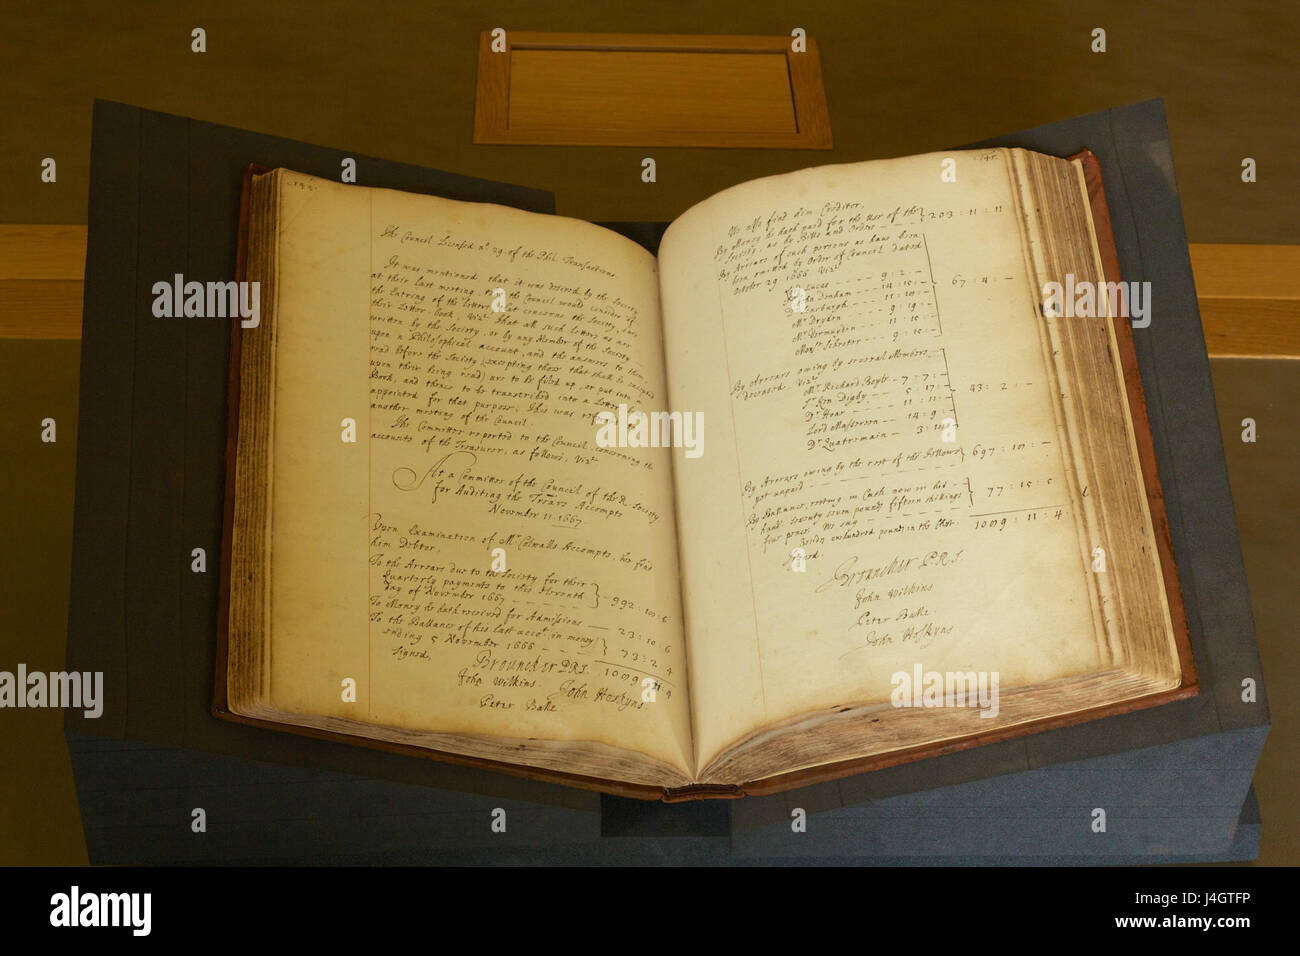 144.
The Council Licensed nº 29. of the Phil. Transactions.
It was mentioned that it was desired by the Society
at their last meeting, that the Council would consider of
the Entring of the letters, that concerns the Society, into
their Letter book, Vizt That all such Letters as are
written by the Society, or by any Member of the Society
upon a Philosophical account, and the answers to them,
read before the Society (excepting those that shall be excepted
upon their being read) are to be filed up, or put into a
Book, and thence to be transcribed into a Letter book
appointed for that purpose. This was referred to
another meeting of the Council.
The Committee reported to the Council, concerning the
accounts of the Treasurer, as follows, Vizt
At a Committee of the Council of the R. Society
for Auditing the Trears Accompts
November 11. 1667.
Upon Examination of Mr Colwalls Accompts, we find
him Debtor,
To the Arrears due to the Society for their
Quarterly payments to this eleventh
day of November 1667 992 : 10 : 6
To Money he hath received for Admissions 23 : 10 : 6
To the Ballance of his last accot (in money)
ending 5 November 1666 73 : 2 : 4
Signed, 1089 : 11 : 4
Brouncker P.R.S.
John Wilkins. John Hoskyns.
Peter Balle.
145.
We also find him Creditor,
By Money he hath paid for the use of the
Society, as by Bills and Orders 203 : 11 : 11
By Arrears of such persons as have been
omitted by Order of Council dated
October 29. 1666 Vizt
Lucas 9 : 2 : -
John Denham 14 : 15 : - 67 : 4 : -
11 : 10 : -
Mr Dryden 9 : 19 : -
Mr Vermuyden 11 : 15 : -
Monsr Schroter 9 : 15 : -
By Arrears owing by several Members
deceased, Vizt
Mr Richard Boyle 7 : 7 : -
Sr Ken Digby 5 : 17 : - 43 : 2 : -
Dr Hoar 11 : 11 : -
Lord Massereen 14 : 9 : -
Dr Quatremain 3 : 18 : -
By Arrears owing by the rest of the Fellows
yet unpaid 697 : 10 : -
By Ballance, resting in Cash now in his
hand seventy seven pounds fifteen shillings 77 : 15 : 5
five pence. We say
Besides one hundred pounds in the Chest. 1089 : 11 : 4
Signed.
Brouncker P.R.S.
John Wilkins
Peter Balle.
John Hoskyns
alamy
Image ID: J4GTFP
www.alamy.com